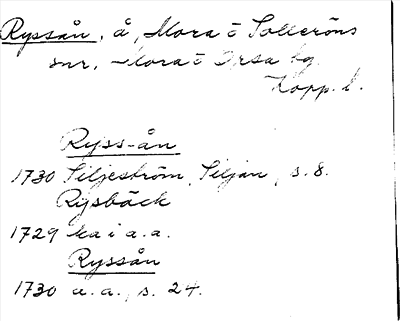 Ryssån, å, Mora o Solleröns
snr, Mora o Orsa tg.
Kopp. l.
Ryss-ån
1730 Siljeström, Siljan, s. 8.
Rysbäck
1729 ka i a.a.
Ryssån
1730 a.a., s. 24.